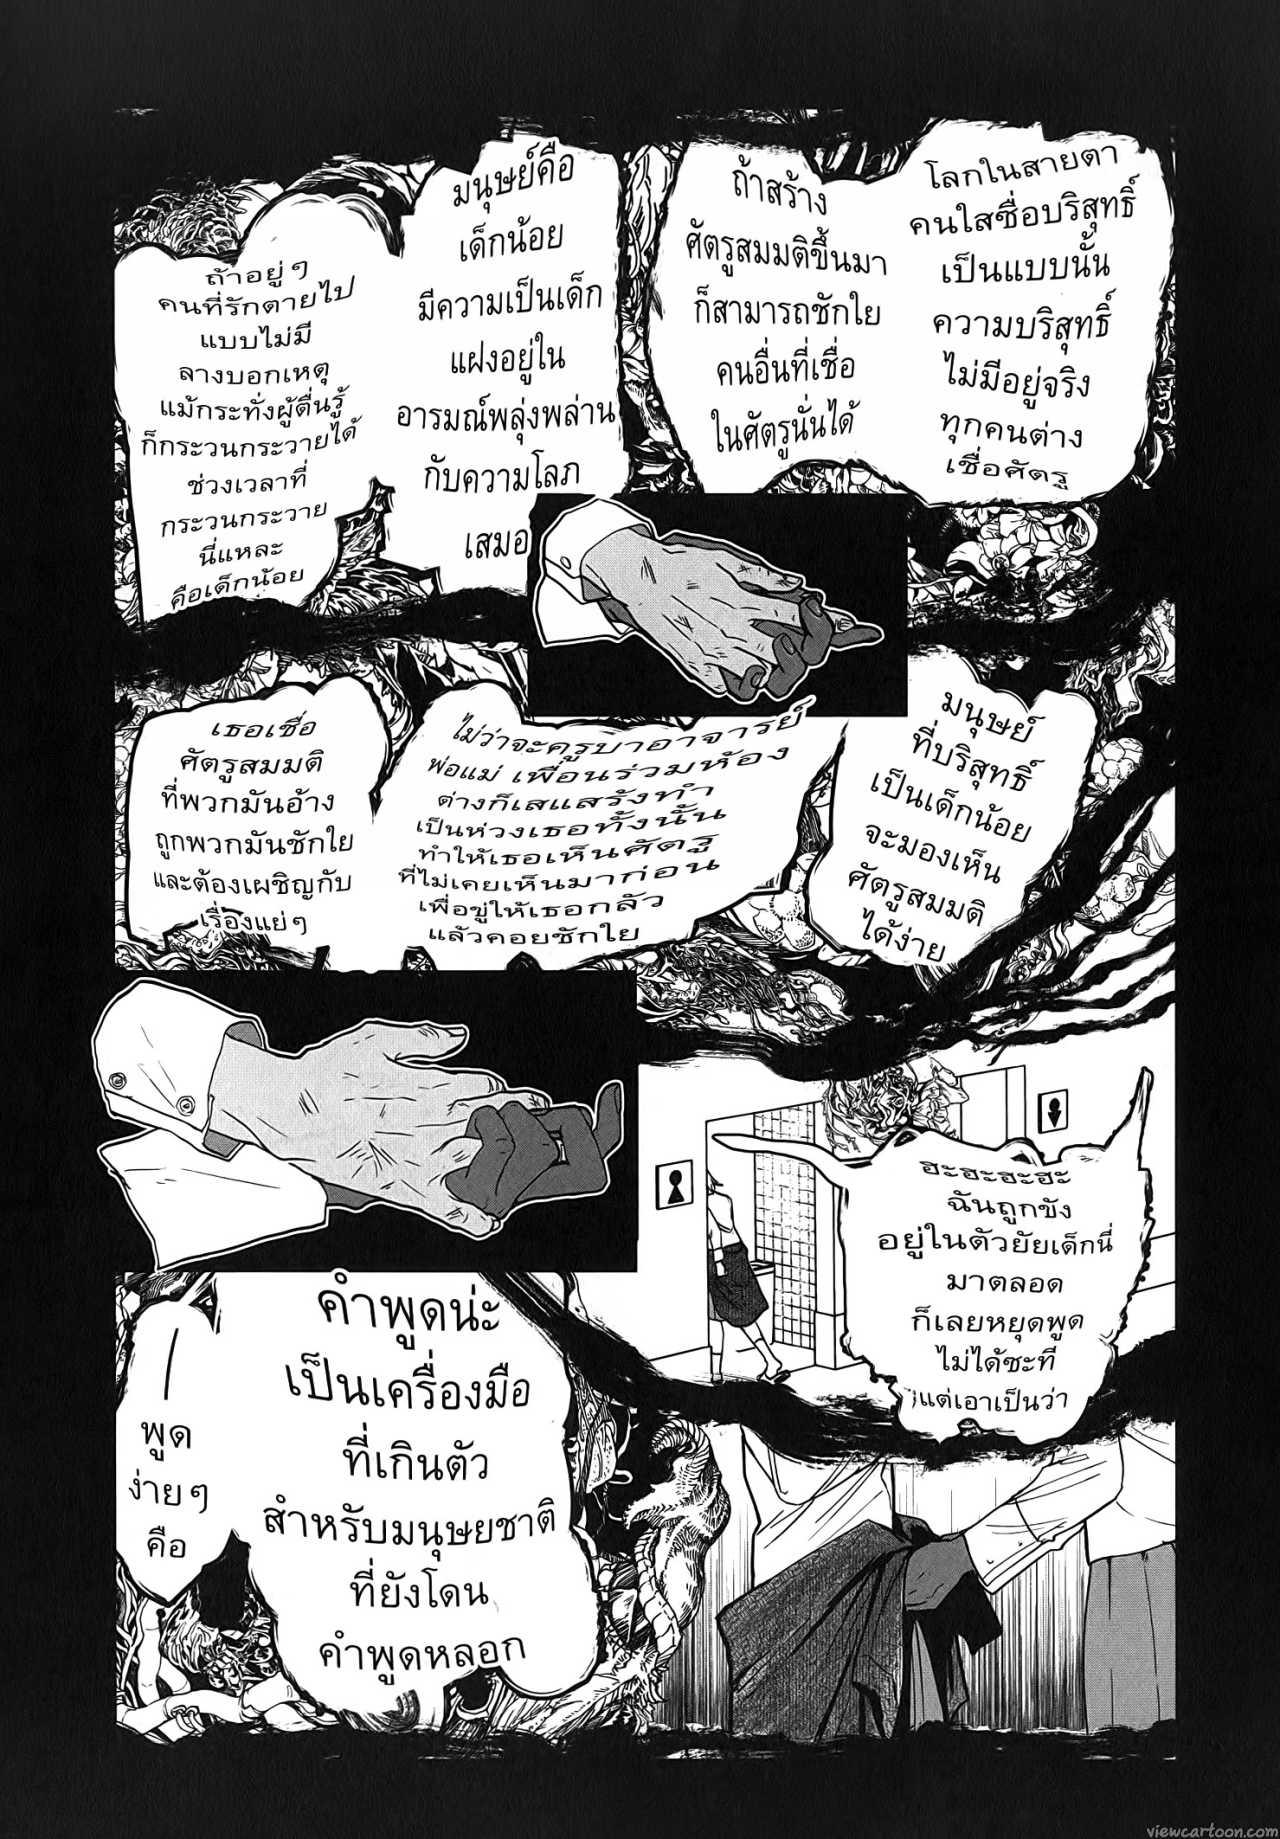 โลกในสายตา
คนใสซื่อบริสุทธิ์
เป็นแบบนั้น
ความบริสุทธิ์
ไม่มีอยู่จริง
ทุกคนต่าง
เชื่อศัตรู
ถ้าสร้าง
ศัตรูสมมติขึ้นมา
ก็สามารถชักใย
คนอื่นที่เชื่อ
ในศัตรูนั่นได้
มนุษย์คือ
เด็กน้อย
มีความเป็นเด็ก
แฝงอยู่ใน
อารมณ์พลุ่งพล่าน
กับความโลภ
เสมอ
ถ้าอยู่ๆ
คนที่รักตายไป
แบบไม่มี
ลางบอกเหตุ
แม้กระทั่งผู้ตื่นรู้
ก็กระวนกระวายได้
ช่วงเวลาที่
กระวนกระวาย
นี่แหละ
คือเด็กน้อย
มนุษย์
ที่บริสุทธิ์
เป็นเด็กน้อย
จะมองเห็น
ศัตรูสมมติ
ได้ง่าย
ไม่ว่าจะครูบาอาจารย์
พ่อแม่ เพื่อนร่วมห้อง
ต่างก็เสแสร้งทำ
เป็นห่วงเธอทั้งนั้น
ทำให้เธอเห็นศัตรู
ที่ไม่เคยเห็นมาก่อน
เพื่อขู่ให้เธอกลัว
แล้วคอยชักใย
เธอเชื่อ
ศัตรูสมมติ
ที่พวกมันอ้าง
ถูกพวกมันชักใย
และต้องเผชิญกับ
เรื่องแย่ๆ
ฮะฮะฮะฮะ
ฉันถูกขัง
อยู่ในตัวยัยเด็กนี่
มาตลอด
ก็เลยหยุดพูด
ไม่ได้ซะที
แต่เอาเป็นว่า
คำพูดน่ะ
เป็นเครื่องมือ
ที่เกินตัว
สำหรับมนุษยชาติ
ที่ยังโดน
คำพูดหลอก
พูด
ง่ายๆ
คือ
viewcartoon.com